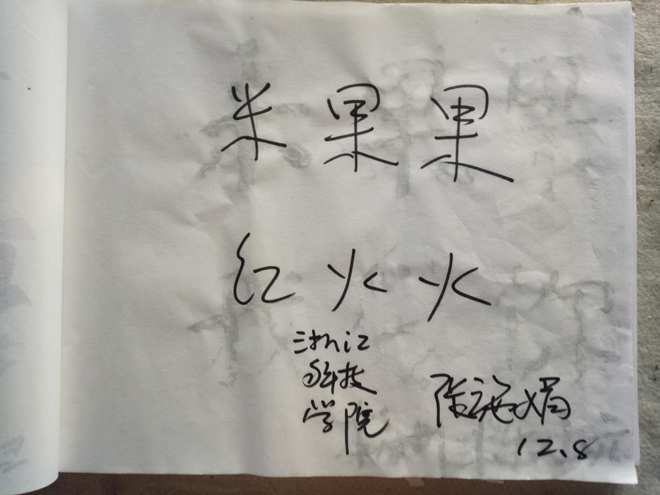 米果果
红火火
浙江
科技
学院
陈海娟
12.8